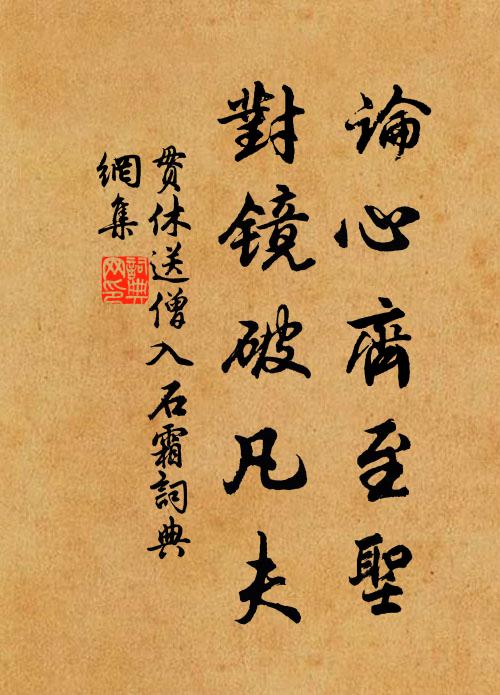 論心齊至聖
對镜破凡夫
贯休送僧入石霜詞典
網集
詞典
网印